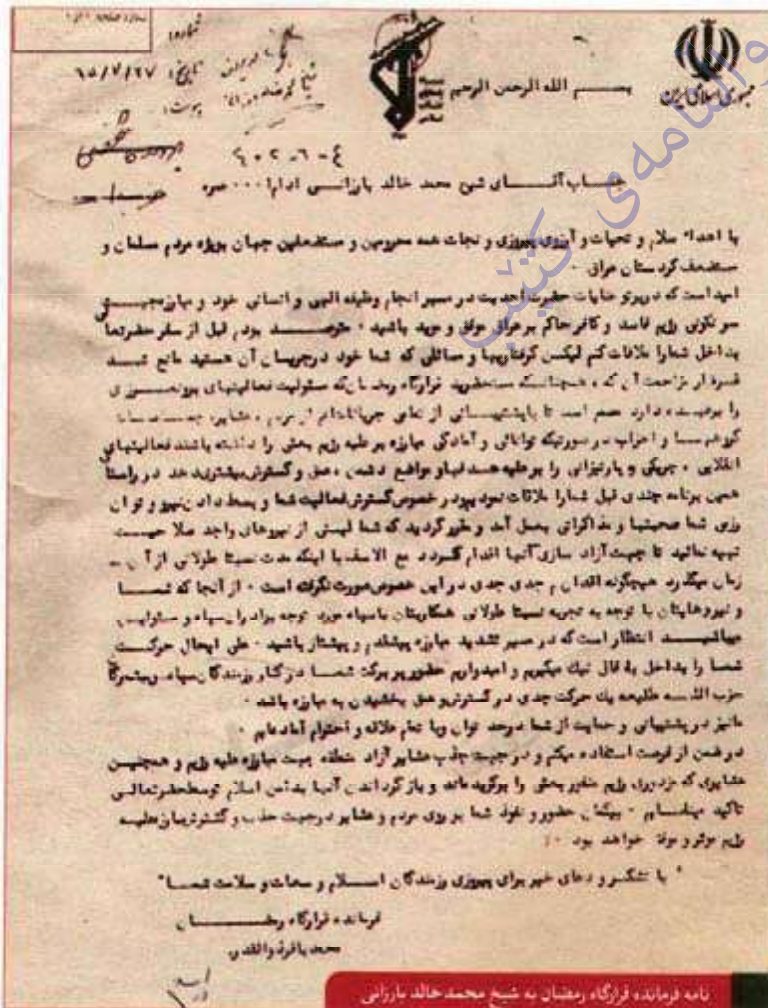 جمهوری اسلامی ایران
بسم الله الرحمن الرحیم
شماره:
تاریخ: ۶۵/۷/۲۷
پیوست:
۴۰۲-۶-۴
جناب آقای شیخ محمد خالد بارزانی ادام ا... عمره
با اهداء سلام و تحیات و آرزوی پیروزی و نجات همه محرومین و مستضعفین جهان بویژه مردم مسلمان و
مستضعف کردستان عراق .
امید است که در پرتو عنایات حضرت احدیت در مسیر انجام وظیفه الهی و انسانی خود و مبارزه جهت
سرنگونی رژیم فاسد و کافر حاکم بر عراق موفق و موید باشید . مترصد بودم قبل از سفر حضرتعا
بداخل شما را ملاقات کنم لیکن گرفتاریها و مسائلی که شما خود در جریان آن هستید مانع شد
همچنانکه مستحضرید قرارگاه رمضان که مسئولیت فعالیتهای برونمرزی
را بر عهده دارد مصمم است تا با پشتیبانی از تمامی
گروهها و احزاب در صورتیکه توانائی و آمادگی مبارزه بر علیه رژیم بعثی را داشته باشند فعالیتهای
انقلابی ، چریکی و پارتیزانی را بر علیه هدفها و مواضع دشمن ، عمق و گسترش بیشتری دهد در راستا
همین برنامه چندی قبل شما را ملاقات نمودیم و در خصوص گسترش فعالیت شما و بسط دادن نیرو و توان
رزمی شما صحبتها و مذاکراتی بعمل آمد و مقرر گردید که شما لیستی از نیروهای واجد صلاحیت
تهیه نمائید تا جهت آزاد سازی آنها اقدام گردد مع الاسف با اینکه مدت نسبتا طولانی از آن
زمان میگذرد هیچگونه اقدام جدی در این خصوص صورت نگرفته است . از آنجا که شما
و نیروهایتان با توجه به تجربه نسبتا طولانی همکاریتان با سپاه مورد توجه برادران سپاه و مسئولین
میباشید انتظار است که در مسیر تشدید مبارزه پیشقدم و پیشتاز باشید . علی ایحال حرکت
شما را بداخل بفال نیک میگیریم و امیدواریم حضور پر برکت شما در کنار رزمندگان سپاه و پیشمرگان
حزب الله طلیعه یک حرکت جدی در گسترش و عمق بخشیدن به مبارزه باشد .
ما نیز در پشتیبانی و حمایت از شما در حد توان و با تمام علاقه و احترام آماده ایم .
در ضمن از فرصت استفاده میکنم و در جهت جذب عشایر آزاد منطقه جهت مبارزه علیه رژیم و همچنین
عشایری که مزدوری رژیم منفور بعثی را برگزیده اند و باز گرداندن آنها بدامن اسلام توسط حضرتعالی
تاکید مینمایم . بیگمان حضور و نفوذ شما بر روی مردم و عشایر در جهت جذب و علیه
رژیم موثر و موفق خواهد بود .
" با تشکر و دعای خیر برای پیروزی رزمندگان اسلام و سلامت شما "
فرمانده قرارگاه رمضان
محمد باقر ذوالقدر
نامه فرمانده قرارگاه رمضان به شیخ محمد خالد بارزانی